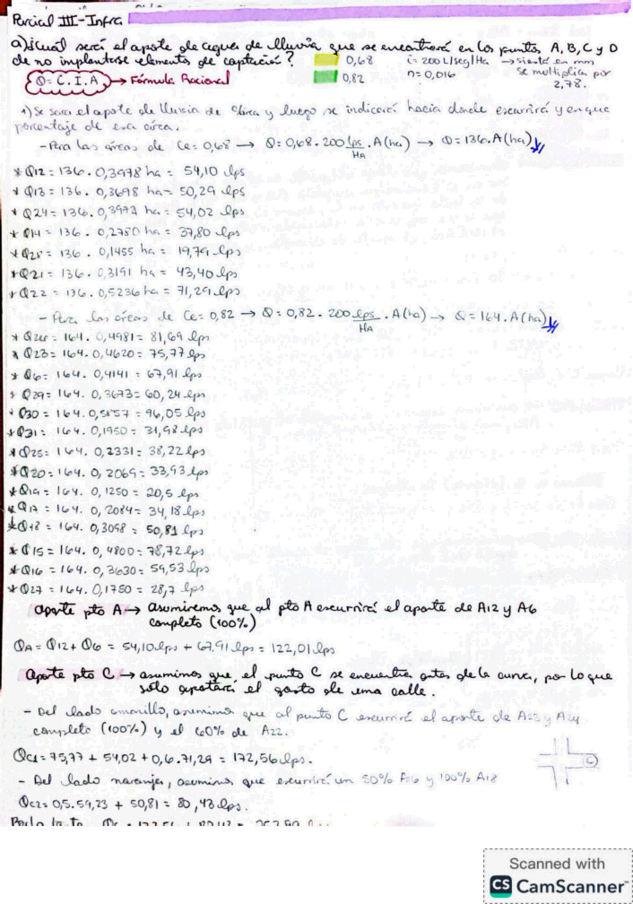 Parcial III-Infra
a) ¿Cual será el aporte de aguas de lluvia que se encontrará en los puntos A, B, C y D
de no implantarse elementos de captación? 0,68 i= 200 L/seg/Ha → si está en mm
Q= C. I. A → Fórmula Racional 0,82 n= 0,016 se multiplica por
2,78.
1) Se saca el aporte de lluvia de área y luego se indicará hacia donde escurrirá y en que
porcentaje de esa área.
- Para las áreas de Ce= 0,68 → Q= 0,68. 200 lps/HA . A(ha) → Q= 136. A(ha)
* Q12= 136. 0,3978 ha = 54,10 lps
* Q13= 136. 0,3698 ha= 50,29 lps
* Q24= 136. 0,3973 ha= 54,02 lps
* Q14= 136. 0,2780 ha= 37,80 lps
* 136. 0,1455 ha= 19,79 lps
* Q21= 136. 0,3191 ha= 43,40 lps
* Q22= 136. 0,5236 ha= 71,29 lps
- Para las áreas de Ce= 0,82 → Q= 0,82. 200 lps/HA . A(ha) → Q= 164. A(ha)
* 164. 0,4981= 81,69 lps
* Q23= 164. 0,4620= 75,77 lps
* Q6= 164. 0,4141= 67,91 lps
* Q29= 164. 0,3673= 60,24 lps
* Q30= 164. 0,5857= 96,05 lps
* Q31= 164. 0,1950= 31,98 lps
* Q25= 164. 0,2331= 38,22 lps
* Q20= 164. 0,2069= 33,93 lps
* Q19= 164. 0,1250= 20,5 lps
* Q17= 164. 0,2084= 34,18 lps
* Q18= 164. 0,3098= 50,81 lps
* Q15= 164. 0,4800= 78,72 lps
* Q16= 164. 0,3630= 59,53 lps
* Q27= 164. 0,1750= 28,7 lps
Aporte pto A → Asumiremos que al pto A escurrirá el aporte de A12 y A6
completo (100%)
QA= Q12+ Q6 = 54,10 lps + 67,91 lps = 122,01 lps
Aporte pto C → asumimos que, el punto C se encuentra antes de la curva, por lo que
solo aportará el gasto de una calle.
- Del lado amarillo, asumimos que al punto C escurrirá el aporte de A23 y A24
completo (100%) y el 60% de A22.
QC1= 75,77 + 54,02 + 0,6. 71,29 = 172,56 lps.
C
- Del lado naranja, asumimos que escurrirá un 50% A16 y 100% A18
QC2= 0,5. 59,23 + 50,81 = 80,43 lps.
Por lo tanto
Scanned with
CS CamScanner